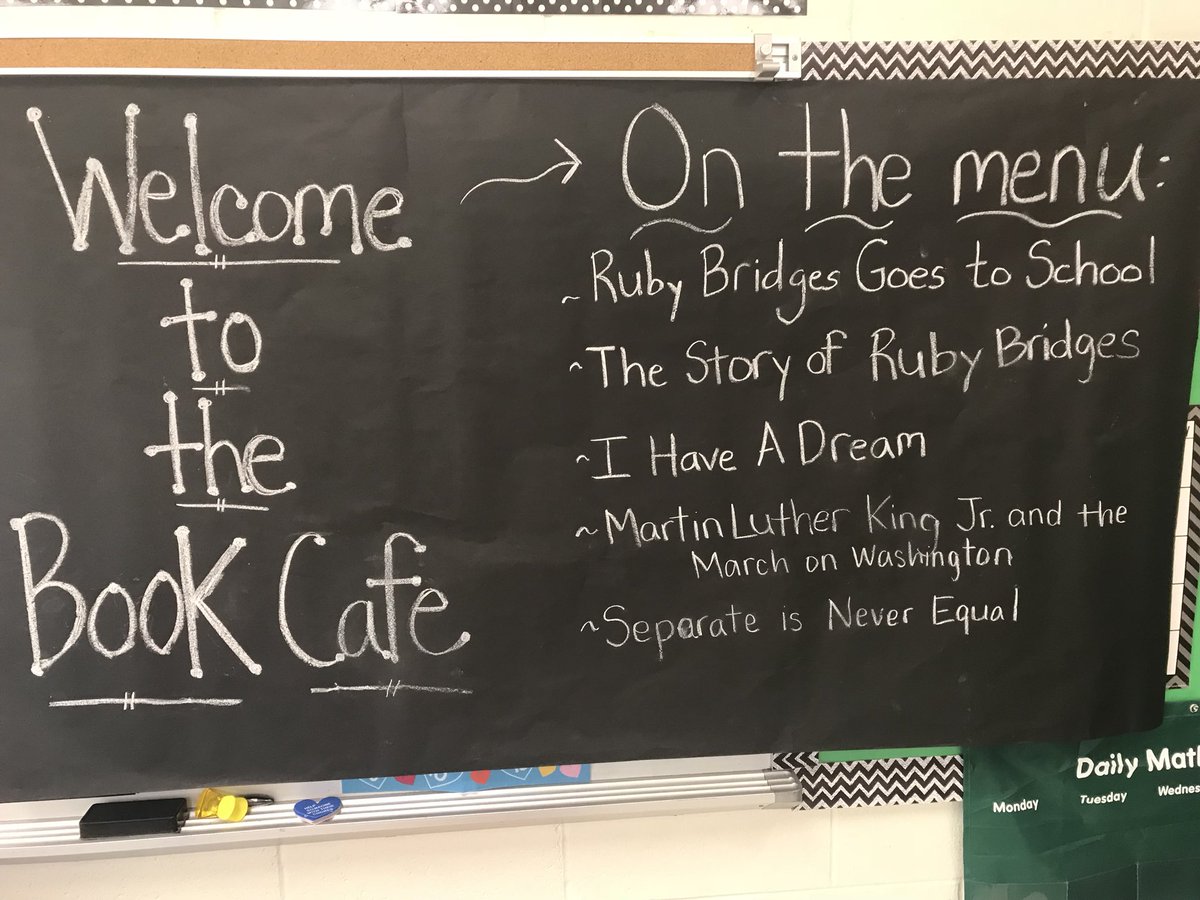 Welcome
to
the
Book Cafe
On the menu:
~ Ruby Bridges Goes to School
~ The Story of Ruby Bridges
~ I Have A Dream
~ Martin Luther King Jr. and the
March on Washington
~ Separate is Never Equal
Daily Math
Monday Tuesday